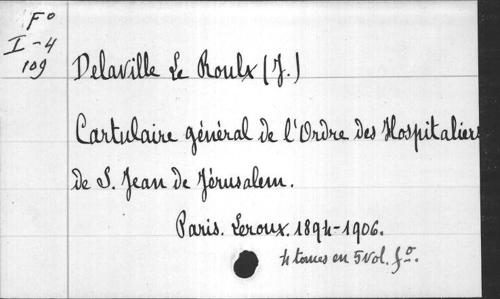 Fº
I-4
109
Delaville Le Roulx (J.)
Cartulaire général de l'Ordre des Hospitaliers
de S. Jean de Jérusalem.
Paris. Leroux. 1894-1906.
4 tomes en 5 vol. fº.